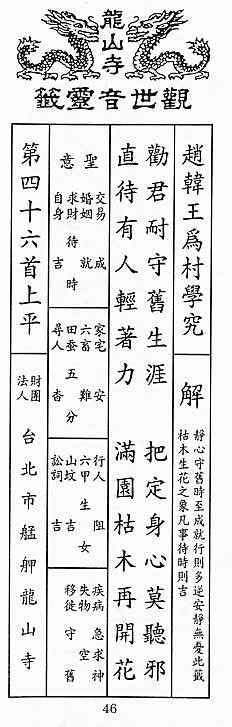 龍山寺
觀世音靈籤
趙韓王爲村學究
解
靜心守舊時至成就行則多逆安靜無憂此籤
枯木生花之象凡事待時則吉
勸君耐守舊生涯 把定身心莫聽邪
直待有人輕著力 滿園枯木再開花
聖意
交易 成
婚姻 就
求財 待時
自身 吉
家宅 安
六畜 難
田蚕 五分
尋人 杳
行人 阻
六甲 生女
山坟 吉
訟詞 吉
疾病 急求神
失物 空
移徙 守舊
第四十六首上平
財團
法人
台北市艋舺龍山寺
46